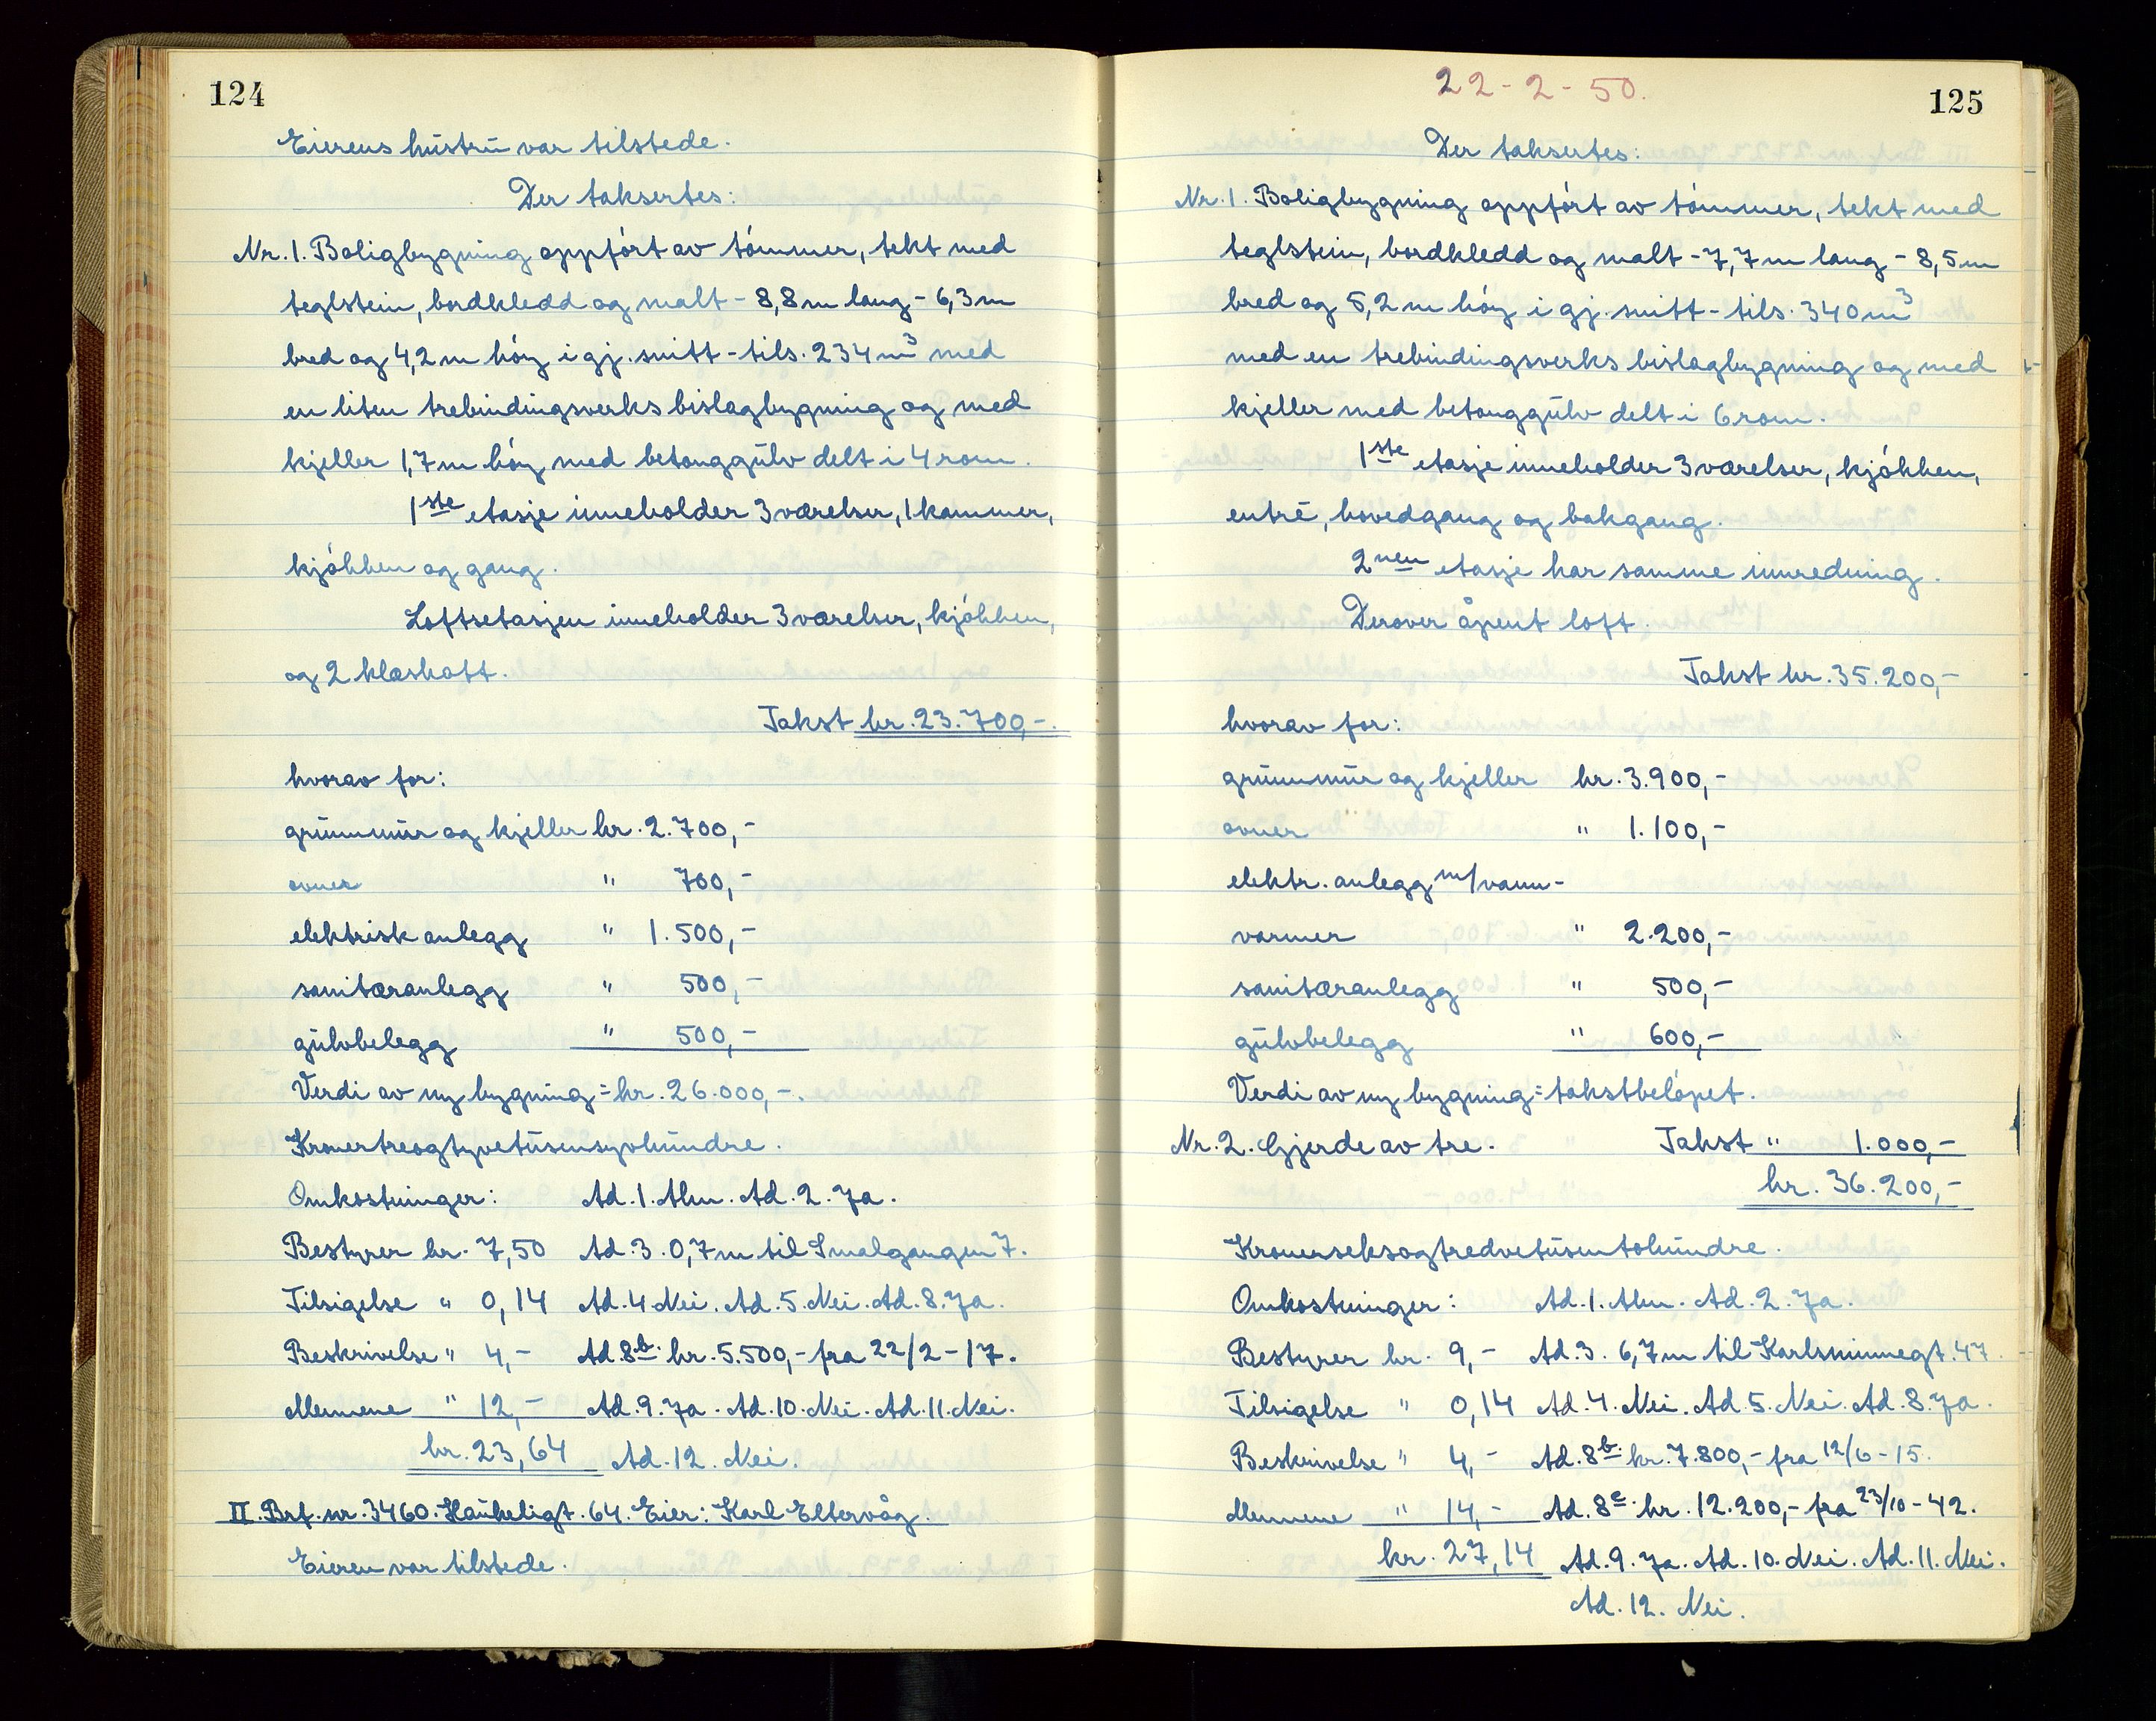 124
Eierens hustru var tilstede.
Der taksertes:
Nr. 1. Boligbygning oppført av tømmer, tekt med
teglstein, bordkledd og malt - 8,8 m lang - 6,3 m
bred og 4,2 m høy i gj. snitt - tils. 234 m³ med
en liten trebindingsverks bislagbygning og med
kjeller 1,7 m høy med betonggulv delt i 4 rom.
1ste etasje inneholder 3 værelser, 1 kammer,
kjøkken og gang.
Loftsetasjen inneholder 3 værelser, kjøkken,
og 2 klæskott.
Takst kr. 23.700,-.
hvorav for:
grunnmur og kjeller kr. 2.700,-
ovner " 700,-
elektrisk anlegg " 1.500,-
sanitæranlegg " 500,-
gulvbelegg " 500,-
Verdi av ny bygning = kr. 26.000,-.
Kronertreogtyvetusensyvhundre.
Omkostninger: Ad. 1. Alm. Ad. 2. Ja.
Bestyrer kr. 7,50 Ad. 3. 0,7 m til Smalgangen 7.
Tilsigelse " 0,14 Ad. 4 Nei. Ad. 5. Nei. Ad. 8. Ja.
Beskrivelse " 4,- Ad 8b. kr. 5.500,- fra 22/2 - 17.
Mennene " 12,- Ad. 9. Ja. Ad. 10. Nei. Ad. 11. Nei.
kr. 23,64 Ad. 12. Nei.
II. Brf. nr. 3460. Haukeligt. 64. Eier: Karl Eltervåg.
Eieren var tilstede.
22-2-50.
125
Der taksertes:
Nr. 1. Boligbygning oppført av tømmer, tekt med
teglstein, bordkledd og malt - 7,7 m lang - 8,5 m
bred og 5,2 m høy i gj. snitt - tils. 340 m³
med en trebindingsverks bislagbygning og med
kjeller med betonggulv delt i 6 rom.
1ste etasje inneholder 3 værelser, kjøkken,
entré, hovedgang og bakgang.
2nen etasje har samme innredning.
Derover åpent loft.
Takst kr. 35.200,-
hvorav for:
grunnmur og kjeller kr. 3.900,-
ovner " 1.100,-
elektr. anlegg m/vann-
varmer " 2.200,-
sanitæranlegg " 500,-
gulvbelegg " 600,-
Verdi av ny bygning = takstbeløpet.
Nr. 2. Gjerde av tre. Takst " 1.000,-
kr. 36.200,-
Kronerseksogtredvetusentohundre.
Omkostninger: Ad. 1. Alm. Ad. 2. Ja.
Bestyrer kr. 9,- Ad. 3. 6,7 m til Karlsminnegt. 47.
Tilsigelse " 0,14 Ad. 4. Nei. Ad. 5. Nei. Ad. 8. Ja.
Beskrivelse " 4,- Ad. 8b. kr. 7.800,- fra 12/6 - 15.
Mennene " 14,- Ad. 8c. kr. 12.200,- fra 23/10 - 42.
kr. 27,14 Ad. 9. Ja. Ad. 10. Nei. Ad. 11. Nei.
Ad. 12. Nei.